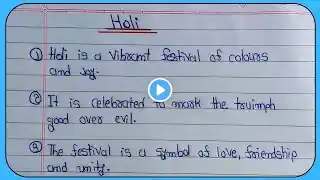 Holi
① Holi is a Vibrant festival of colours
and Joy.
② It is celebrated to mark the truimph
good over evil.
③ The festival is a symbol of love, friendship
and unity.